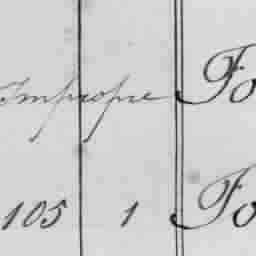 Impropre Fo
105 1 Fo